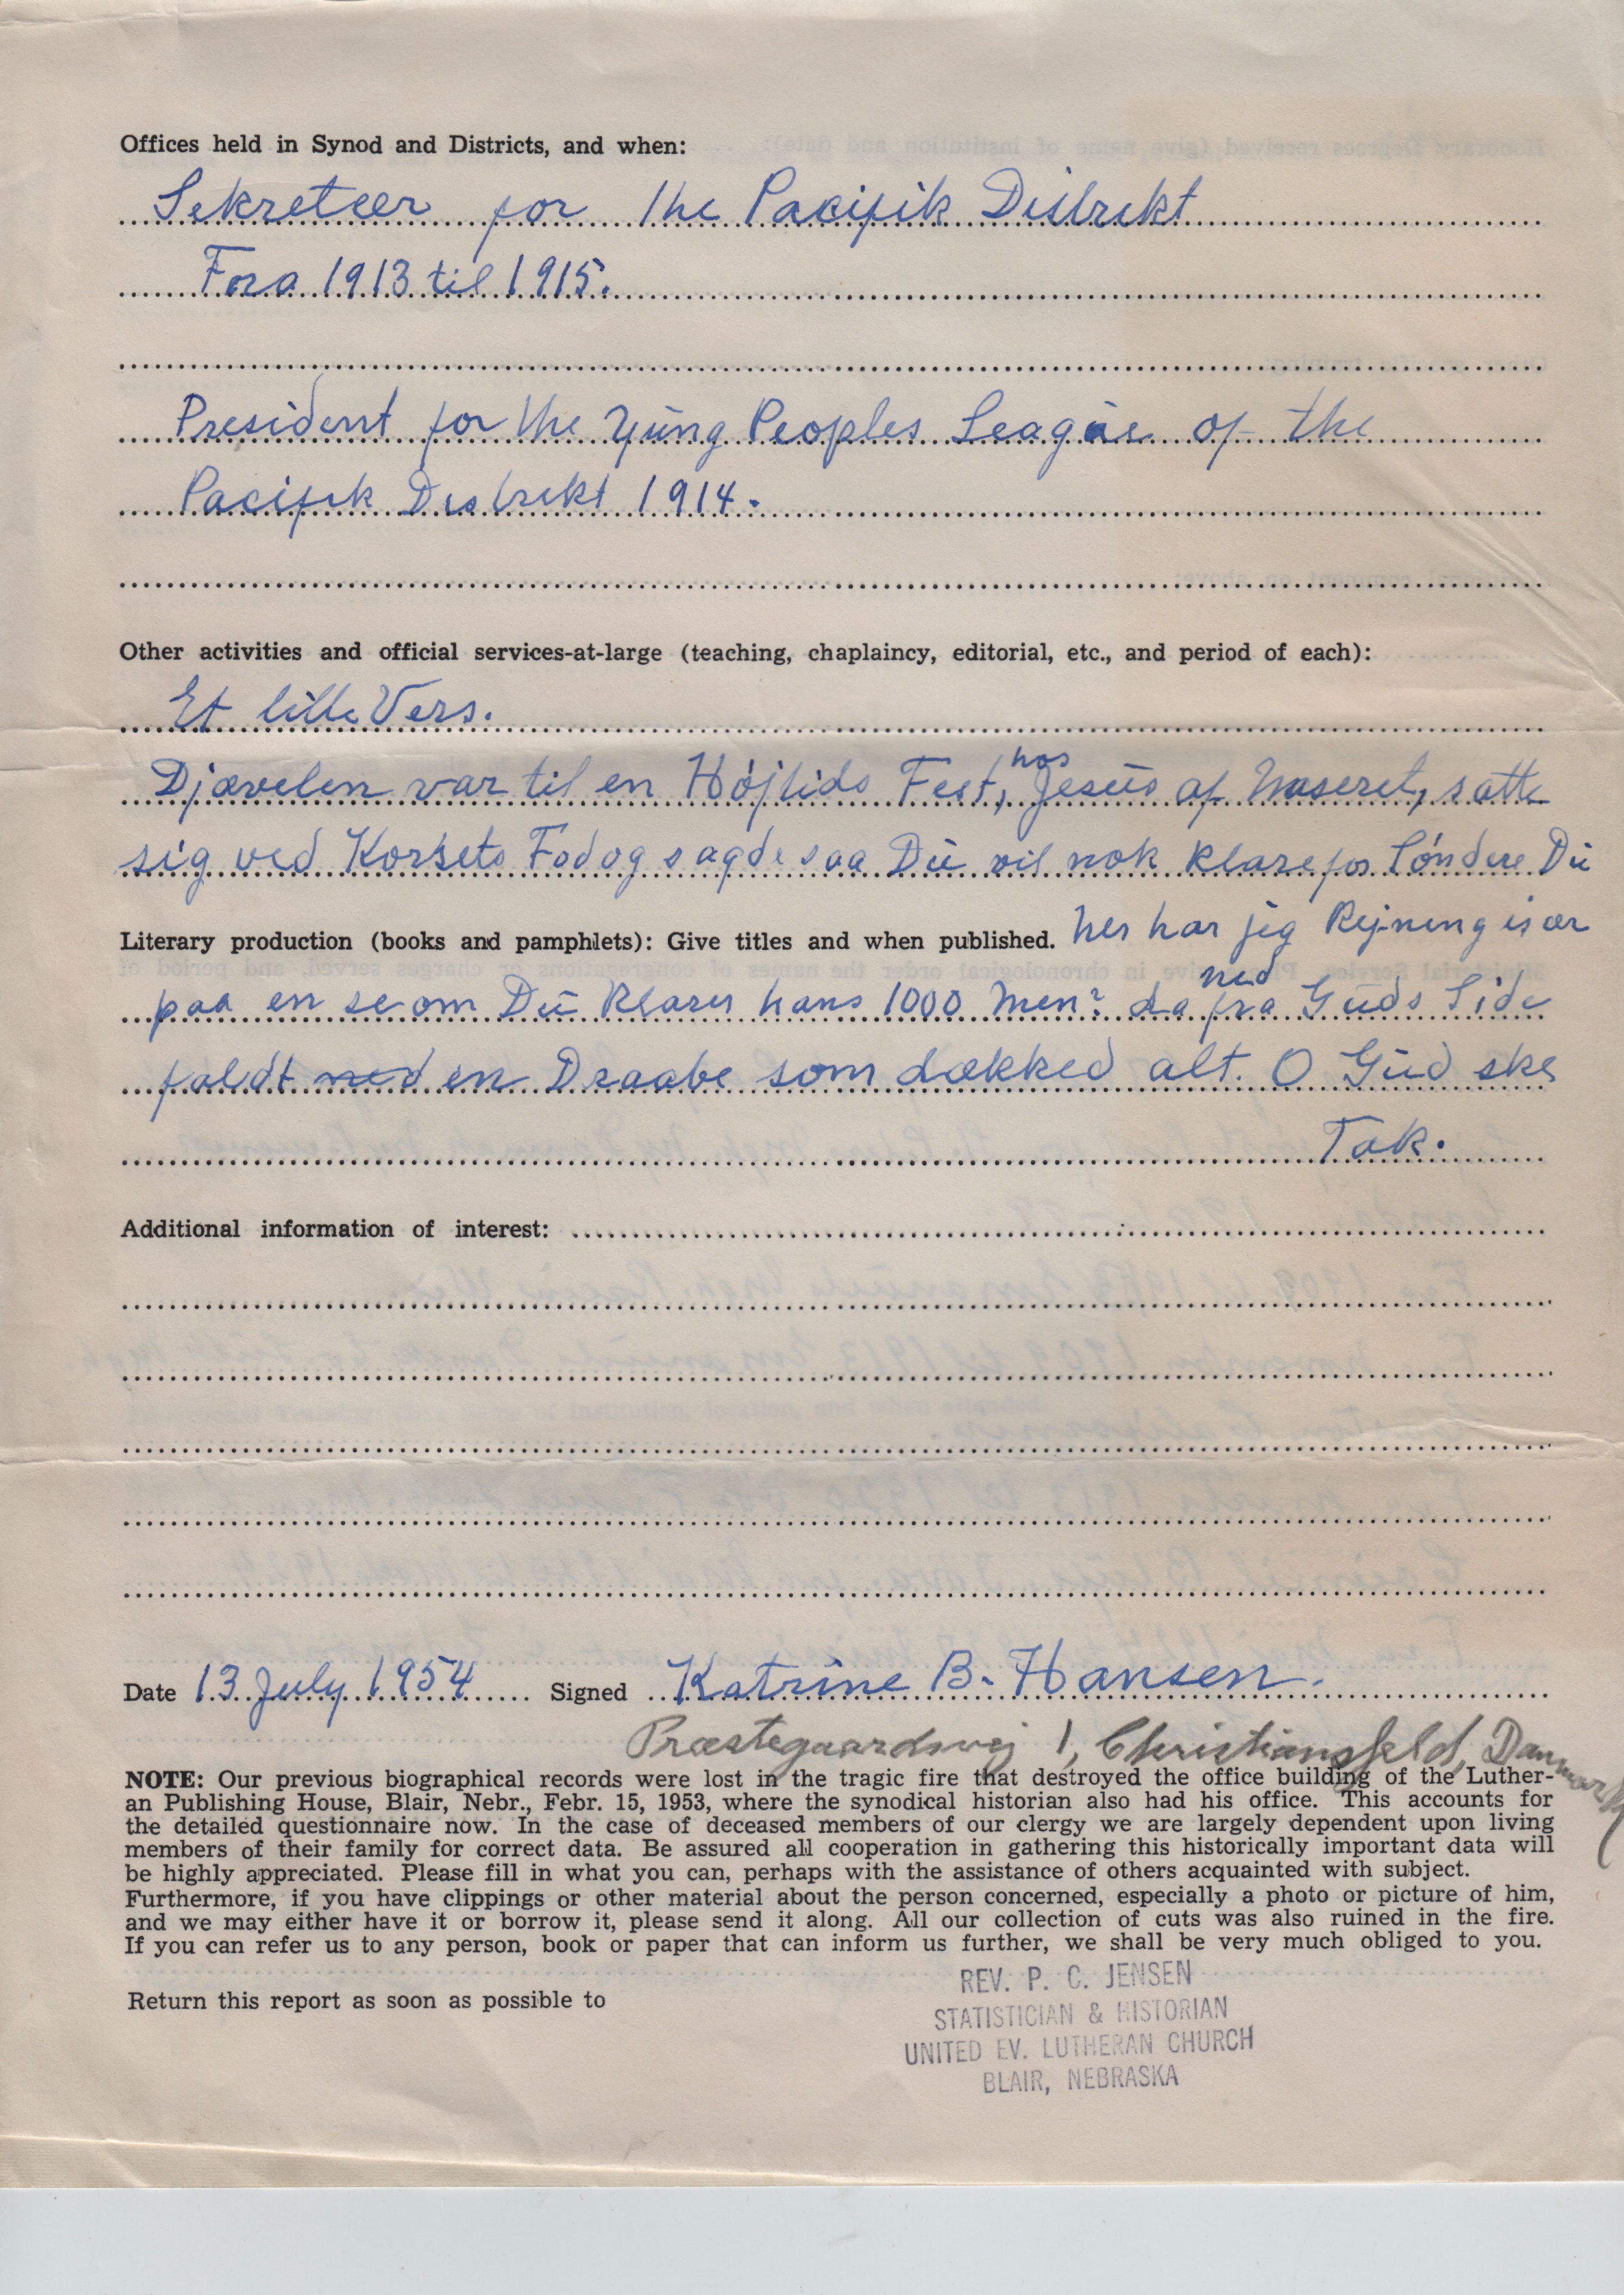 Offices held in Synod and Districts, and when:
Sekreteer for the Pacifik Distrekt
Fora 1913 til 1915.
President for the Yüng Peoples Leagüe of the
Pacifik Distrekt 1914.
Other activities and official services-at-large (teaching, chaplaincy, editorial, etc., and period of each):
Et lille Vers.
Djævelen var til en Højtids Fest, hos Jesüs af Naseret, satte
sig ved Korsets Fod og sagde saa Dü vil nok klare for Søndere Dü
Literary production (books and pamphlets): Give titles and when published. her har jeg Rejning især
paa en se om Dü klarer hans 1000 Men? da ned fra Güds Side
faldt ned en Draabe som dækked alt. O Güd ske
Tak.
Additional information of interest:
Date 13 July 1954 Signed Katrine B. Hansen.
Præstegaardsvej 1, Christiansfeld, Danmark
NOTE: Our previous biographical records were lost in the tragic fire that destroyed the office building of the Luther-
an Publishing House, Blair, Nebr., Febr. 15, 1953, where the synodical historian also had his office. This accounts for
the detailed questionnaire now. In the case of deceased members of our clergy we are largely dependent upon living
members of their family for correct data. Be assured all cooperation in gathering this historically important data will
be highly appreciated. Please fill in what you can, perhaps with the assistance of others acquainted with subject.
Furthermore, if you have clippings or other material about the person concerned, especially a photo or picture of him,
and we may either have it or borrow it, please send it along. All our collection of cuts was also ruined in the fire.
If you can refer us to any person, book or paper that can inform us further, we shall be very much obliged to you.
Return this report as soon as possible to
REV. P. C. JENSEN
STATISTICIAN & HISTORIAN
UNITED EV. LUTHERAN CHURCH
BLAIR, NEBRASKA